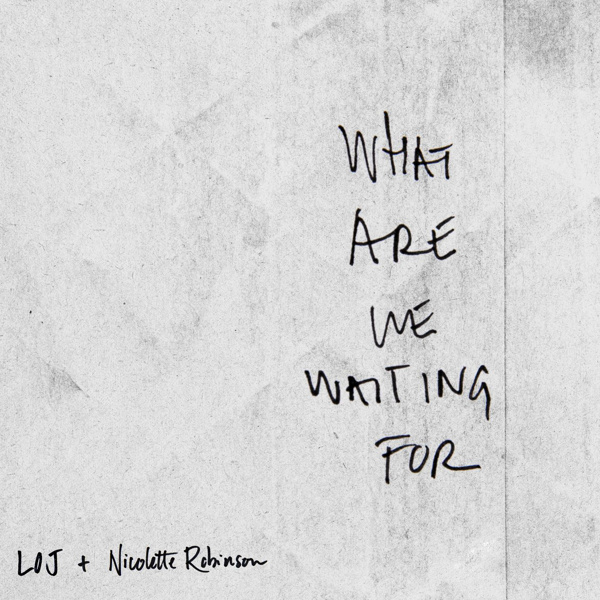 WHAT
ARE
WE
WAITING
FOR
LOJ + Nicolette Robinson